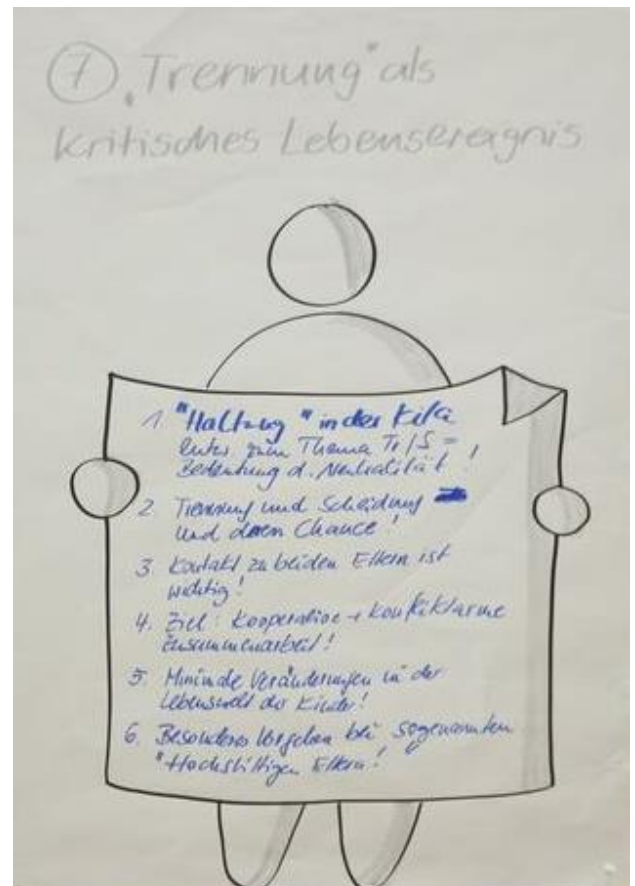 ⑦ „Trennung" als
kritisches Lebensereignis
1. "Haltung" in der Kita
zum Thema Tr/S =
Bedeutung d. Neutralität!
2. Trennung und Scheidung
und deren Chance!
3. Kontakt zu beiden Eltern ist
wichtig!
4. Ziel: Kooperative + konfliktarme
Zusammenarbeit!
5. Minimale Veränderungen in der
Lebenswelt der Kinder!
6. Besonderes Vorgehen bei sogenannten
"Hochstrittigen Eltern!